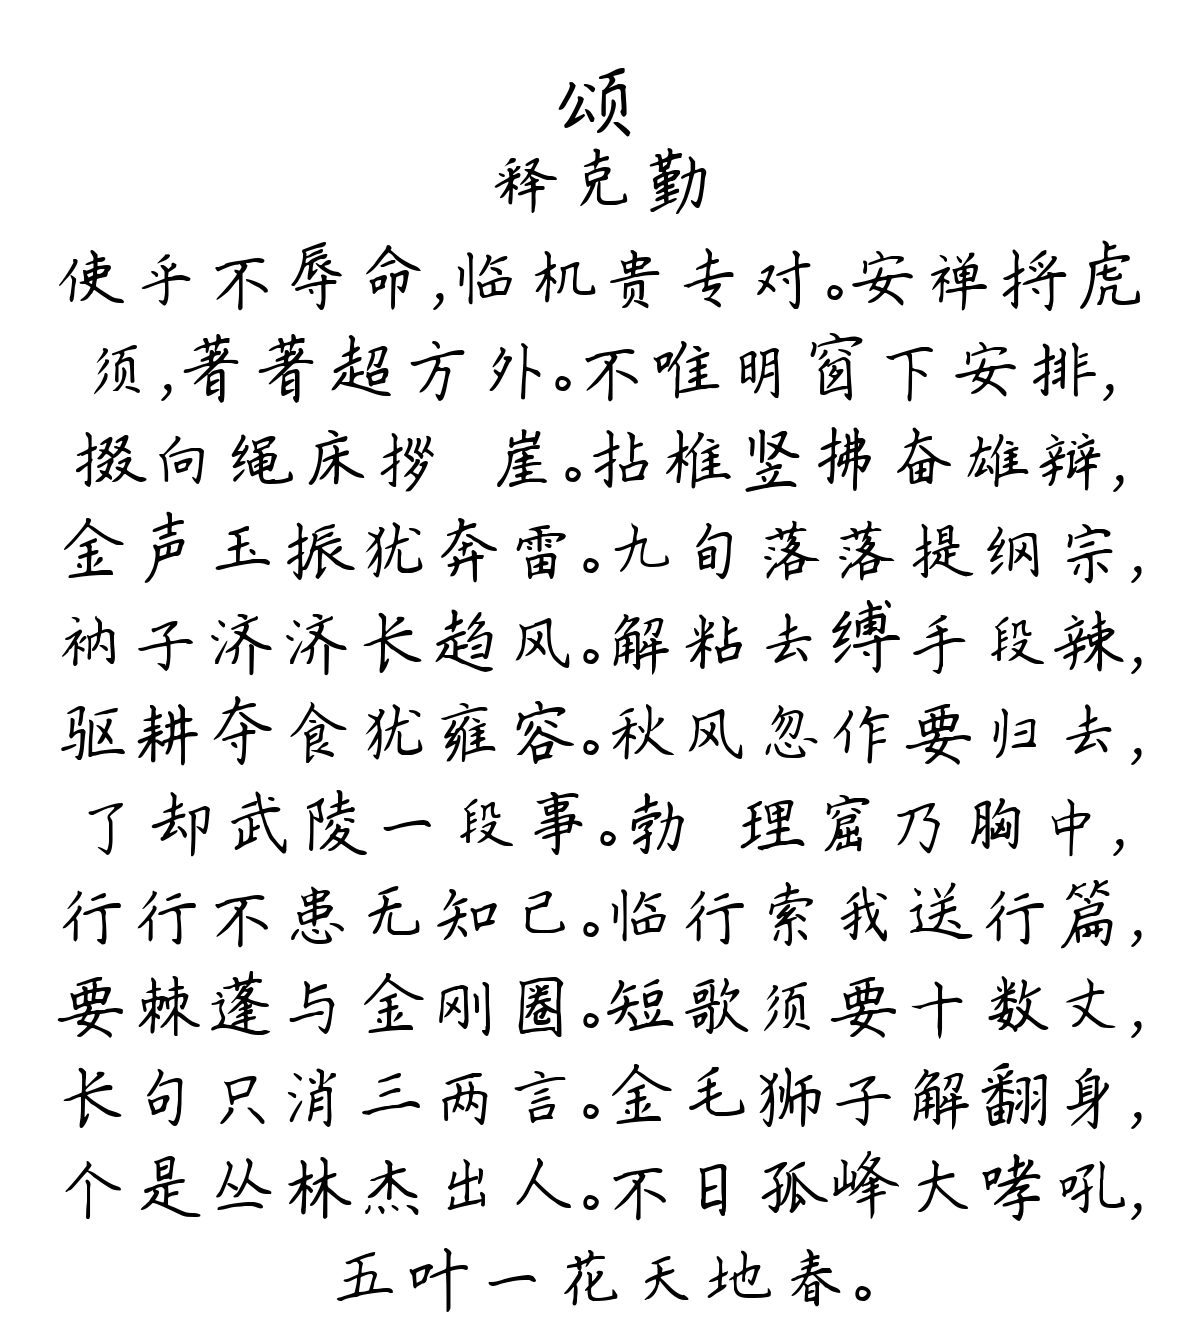 颂
释克勤
使乎不辱命,临机贵专对。安禅捋虎
须,著著超方外。不唯明窗下安排,
掇向绳床拶 崖。拈椎竖拂奋雄辩,
金声玉振犹奔雷。九旬落落提纲宗,
衲子济济长趋风。解粘去缚手段辣,
驱耕夺食犹雍容。秋风忽作要归去,
了却武陵一段事。勃 理窟乃胸中,
行行不患无知己。临行索我送行篇,
要棘蓬与金刚圈。短歌须要十数丈,
长句只消三两言。金毛狮子解翻身,
个是丛林杰出人。不日孤峰大哮吼,
五叶一花天地春。